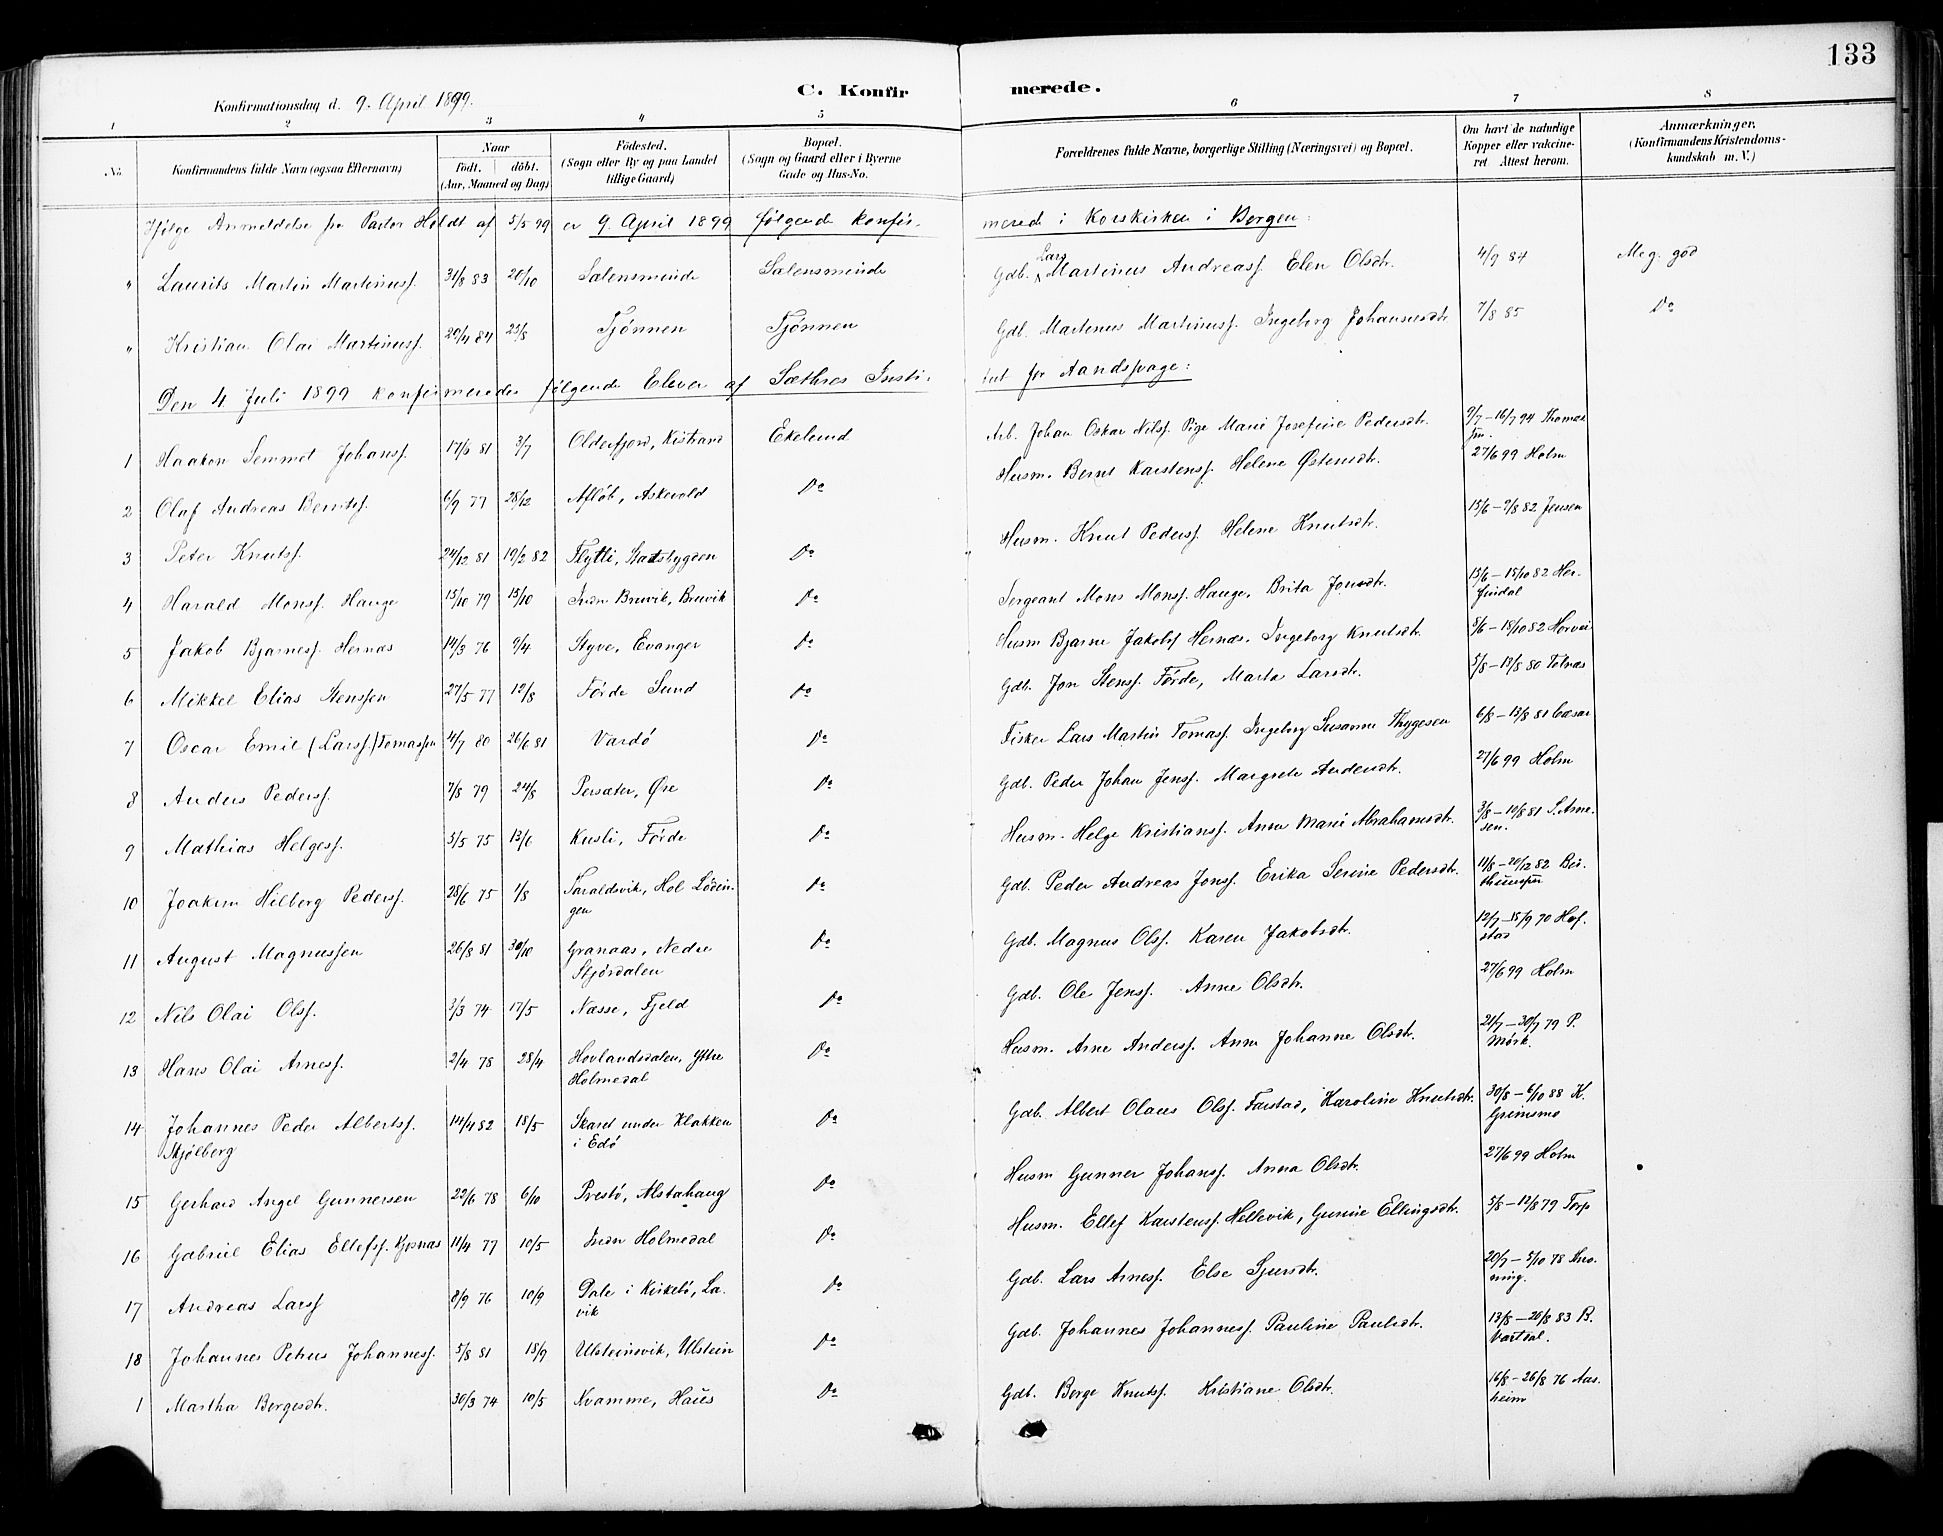 133
Konfirmationsdag d. 9. April 1899.
C. Konfirmerede.
1 2 3 4 5 6 7 8
No. Konfirmandens fulde Navn (ogsaa Efternavn) Naar født. døbt. (Aar, Maaned og Dag) Fødested. (Sogn eller By og paa Landet tillige Gaard) Bopæl. (Sogn og Gaard eller i Byerne Gade og Hus-No. Forældrenes fulde Navne, borgerlige Stilling (Næringsvei) og Bopæl. Om havt de naturlige Kopper eller vakcineret. Attest herom. Anmærkninger. (Konfirmandens Kristendomskundskab m. V.)
Ifølge Anmeldelse fra Pastor Holdt af 5/5 99 er 9. April 1899 følgende konfirmerede i Korskirken i Bergen:
" Laurits Martin Martinuss. 31/8 83 20/10 Salensminde Salensminde Gdb. Lars Martinus Andreass. Elen Olsdtr. 4/9 84 Meg. god
" Kristian Olai Martinuss. 20/4 84 25/8 Tjønnen Tjønnen Gdb. Martinus Martinuss. Ingeborg Johannesdtr. 7/8 85 Do
Den 4 Juli 1899 konfirmeredes følgende Elever af Sæthres Institut for Aandsvage:
1 Haakon Semmet Johans. 17/5 81 3/7 Olderfjord, Kistrand Ekelund Arb. Johan Oskar Nils. Pige Marie Josefine Pedersdtr. 9/7 – 16/7 94 Thomassen.
2 Olaf Andreas Bernts. 6/9 77 28/12 Afløb, Askevold Do Husm. Bernt Karstens. Helene Østensdtr. 27/6 99 Holm
3 Peter Knuts. 24/12 81 19/2 82 Flytli, Stadsbygden Do Husm. Knut Peders. Helene Knutsdtr. 15/6 – 9/8 82 Jensen
4 Harald Mons. Hauge 15/10 79 13/10 Indre Bruvik, Bruvik Do Sergeant Mons Mons. Hauge, Brita Jonsdtr. 13/6 – 15/10 82 Herfindal
5 Jakob Bjarnes. Hernæs 14/3 76 9/4 Styve, Evanger Do Husm Bjarne Jakobs Hernæs. Ingeborg Knutsdtr. 8/6 – 18/10 82 Horvei
6 Mikkel Elias Stenssen 27/5 77 12/8 Førde Sund Do Gdb. Jon Stens. Førde, Marta Larsdtr. 5/8 – 13/8 80 Tolnæs
7 Oscar Emil (Lars.) Tomassen 4/7 80 26/6 81 Vardø Do Fisker Lars Martin Tomas. Ingeborg Susanne Thygesen 6/8 – 13/8 81 Cæsar
8 Anders Peders. 7/8 79 24/8 Persæter, Øre Do Gdb. Peder Johan Jens. Margrete Andersdtr. 27/6 99 Holm
9 Mathias Helges. 5/5 75 13/6 Kusli, Førde Do Husm. Helge Kristians. Anne Marie Abrahamsdtr. 3/8 – 10/8 81 S. Arnesen.
10 Joakim Hilberg Peders. 28/6 75 1/8 Taraldsvik, Hol Lødingen Do Gdb. Peder Andreas Jons. Erika Serine Pedersdtr. 11/8 – 20/12 82
11 August Magnussen 26/8 81 30/10 Granaas, Nedre Stjørdalen Do Gdb. Magnus Ols. Karen Jakobsdtr. 12/7 – 15/9 70 Hofstad
12 Nils Olai Ols. 3/3 74 17/5 Næsse, Fjeld Do Gdb. Ole Jens. Anne Olsdtr. 27/6 99 Holm
13 Hans Olai Arnes. 2/4 78 28/4 Hovlandsdalen, Yttre Holmedal Do Husm. Arne Anders. Anne Johanne Olsdtr. 21/7 – 30/7 79 P. Mørk.
14 Johannes Peder Alberts. Skjølberg 14/4 82 18/5 Skaret under Klakken i Edø Do Gdb. Albert Olaus Ols. Farstad, Karoline Knutsdtr. 30/8 – 6/10 88 K. Grimsmo
15 Gerhard Angel Gunnersen 22/6 78 6/10 Prestø, Alstahaug Do Husm Gunner Johans. Anna Olsdtr. 27/6 99 Holm
16 Gabriel Elias Ellefs. 11/4 77 10/5 Indre Holmedal Do Husm. Ellef Karstens. Hellevik, Gurine Ellingsdtr. 5/8 – 12/8 79 Torp
17 Andreas Lars 8/9 76 10/9 Dale i Kirkebø, Lavik Do Gdb. Lars Arnes. Else Sjursdtr. 20/7 – 5/10 78
18 Johannes Petrus Johannes. 5/8 81 18/9 Ulsteinsvik, Ulstein Do Gdb. Johannes Johannes. Pauline Paulsdtr. 13/8 – 20/8 83 B. Vartdal.
1 Martha Bergesdtr. 30/3 74 10/5 Kvamme, Haus Do Gdb. Berge Knuts. Kristiane Olsdtr. 16/8 – 26/8 76 Aasheim